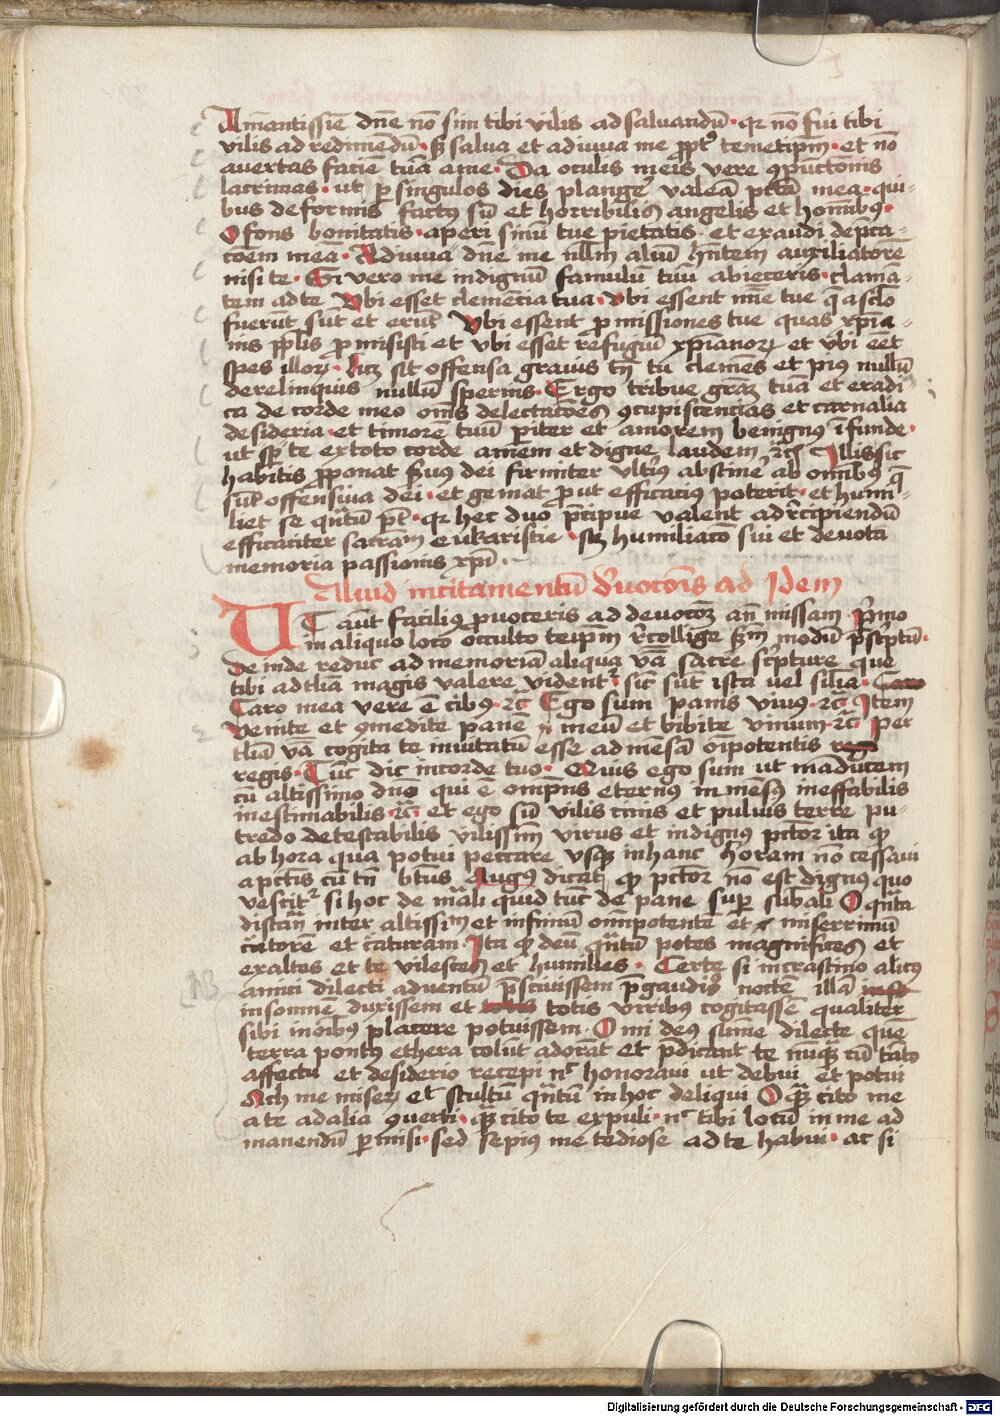 Amātissīe dn̄e nō sim tibi vilis ad saluandū · qr nō fui tibi
vilis ad redimēdū · sꝫ salua et adiuua me ꝓpt̕ temetip̄m · et nō
auertas faciē tuā a me · Da oculis meis vere ꝯpūctonis
lacrimas · ut ꝑ singulos dies plange᷑ valeā pctā mea · qui-
bus deformis factꝰ sū et horribilis angelis et homībꝰ ·
O fons bonitatis · aperi sinū tue pietatis · et exaudi dep̄ca-
cōem meā · Adiuua dn̄e me nllm̄ aliū hn̄tem auxiliatorē
nisi te · Si vero me indignū famulū tuū abieceris · clamā-
tem ad te Vbi esset clemēcia tua · Vbi essent mīe tue q̄ a sclo
fuerūt sūt et erūt Vbi essent ꝓmissiones tue quas xp̄ia-
nis pp̄lis ꝓmisisti et Vbi esset refugiū xp̄ianoꝝ et Vbi eēt
spes illoꝝ · Licꝫ sit offensa grauis tn̄ tu clemēs et pius nullū
derelinquis nullū spernis · Ergo tribue grāꝫ tuā et eradi
ca de corde meo om̄s delectacōes ꝯcupiscencias et carnalia
desideria · et timorē tuū ꝑiter et amorem benignꝰ īfunde ·
ut sp̄ te ex toto corde amem et digne laudem ꝛc̄ Illis sic
habitis ꝓponat seruꝰ dei firmiter vltꝰ abstine᷑ ab omībꝰ q̄
sūt offensiua dei · et gemat ꝓut efficaciꝰ poterit · et humi-
liet se qn̄tū pt̄ · qr hec duo p̄cipue valent ad r̄cipiendū
efficaciter sacr̄am eukaristie · scꝫ humiliacō sui et deuota
memoria passionis xp̄i ·
Aliud incitamentū d̕uocōis ad Idem
UT aūt facilius ꝓuoceris ad deuocōꝫ an̄ missam · P̄mo
in aliquo loco occulto teip̄m r̄collige scdm̄ modū p̄sc̄ptū ·
deinde reduc ad memoriā aliqua v̄ba sacre sc̄pture que
tibi ad tl̄ia magis valere vident᷑ · sic̄ sūt ista uel silīa ·
Caro mea vere ē cibꝰ ꝛc̄ Ego sum panis viuꝰ · ꝛc̄ Item
Venite et ꝯmedite panē meū et bibite vinum · ꝛc̄ Per
tl̄ia v̄ba cogita te inuitatū esse ad mēsā oīpotentis
regis · Tūc dic in corde tuo · Quis ego sum ut manducem
cū altissimo dn̄o qui ē omp̄ns eternꝰ inmēsꝰ ineffabilis
inestimabilis ꝛc̄ et ego sū vilis cinis et puluis terre pu-
tredo detestabilis vilissim̄ virus et indignꝰ pctor ita ꝙ
ab hora qua potui peccare vsqꝫ in hanc horam nō cessaui
a pctīs cū tn̄ bt̄us Augꝰ dicat ꝙ pctor nō est dignꝰ quo
vescit᷑ si hoc de mat̄iali quid tūc de pane suꝑ sūbali O qn̄ta
distan̄ inter altissim̄ et infimū omīpotentē et miserrimū
c̄atorē et c̄aturam · Ita ꝙ deū qn̄tū potes magnifices et
exaltes et te vilescas et humilies · Certe si in crastino alicꝰ
amici dilecti aduentū p̄sciuissem p̄ gaudio noctē illā
insomnē duxissem et totis viribus cogitassē qualiter
sibi in oībꝰ placere potuissem · O mi deꝰ sūme dilecte quē
terra pontꝰ ethera colūt adorāt et p̄dicant te nūqꝫ cū tāto
affectu et desiderio recepi nc̄ honoraui ut debui et potui
Ach me miseꝝ et stultū qn̄tū in hoc deliqui O qꝫ cito me
a te ad alia ꝯuerti · qꝫ cito te expuli · nc̄ tibi locū in me ad
manendū ꝑmisi · sed sepiꝰ me tediose ad te habui · ac si
NB
Digitalisierung gefördert durch die Deutsche Forschungsgemeinschaft - DFG